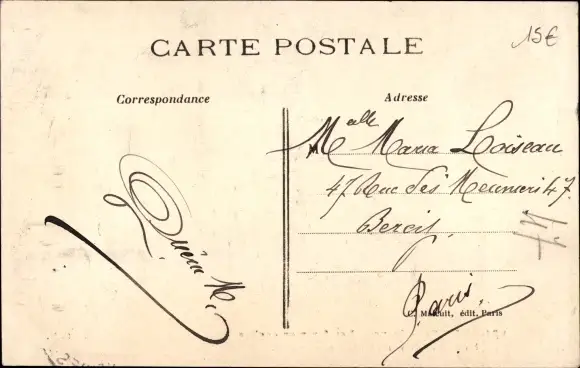 CARTE POSTALE
15€
Correspondance
Adresse
Melle Maria Loiseau
47 Rue des Meuniers 47.
Bercy.
Paris.
C. Malcuit, édit. Paris